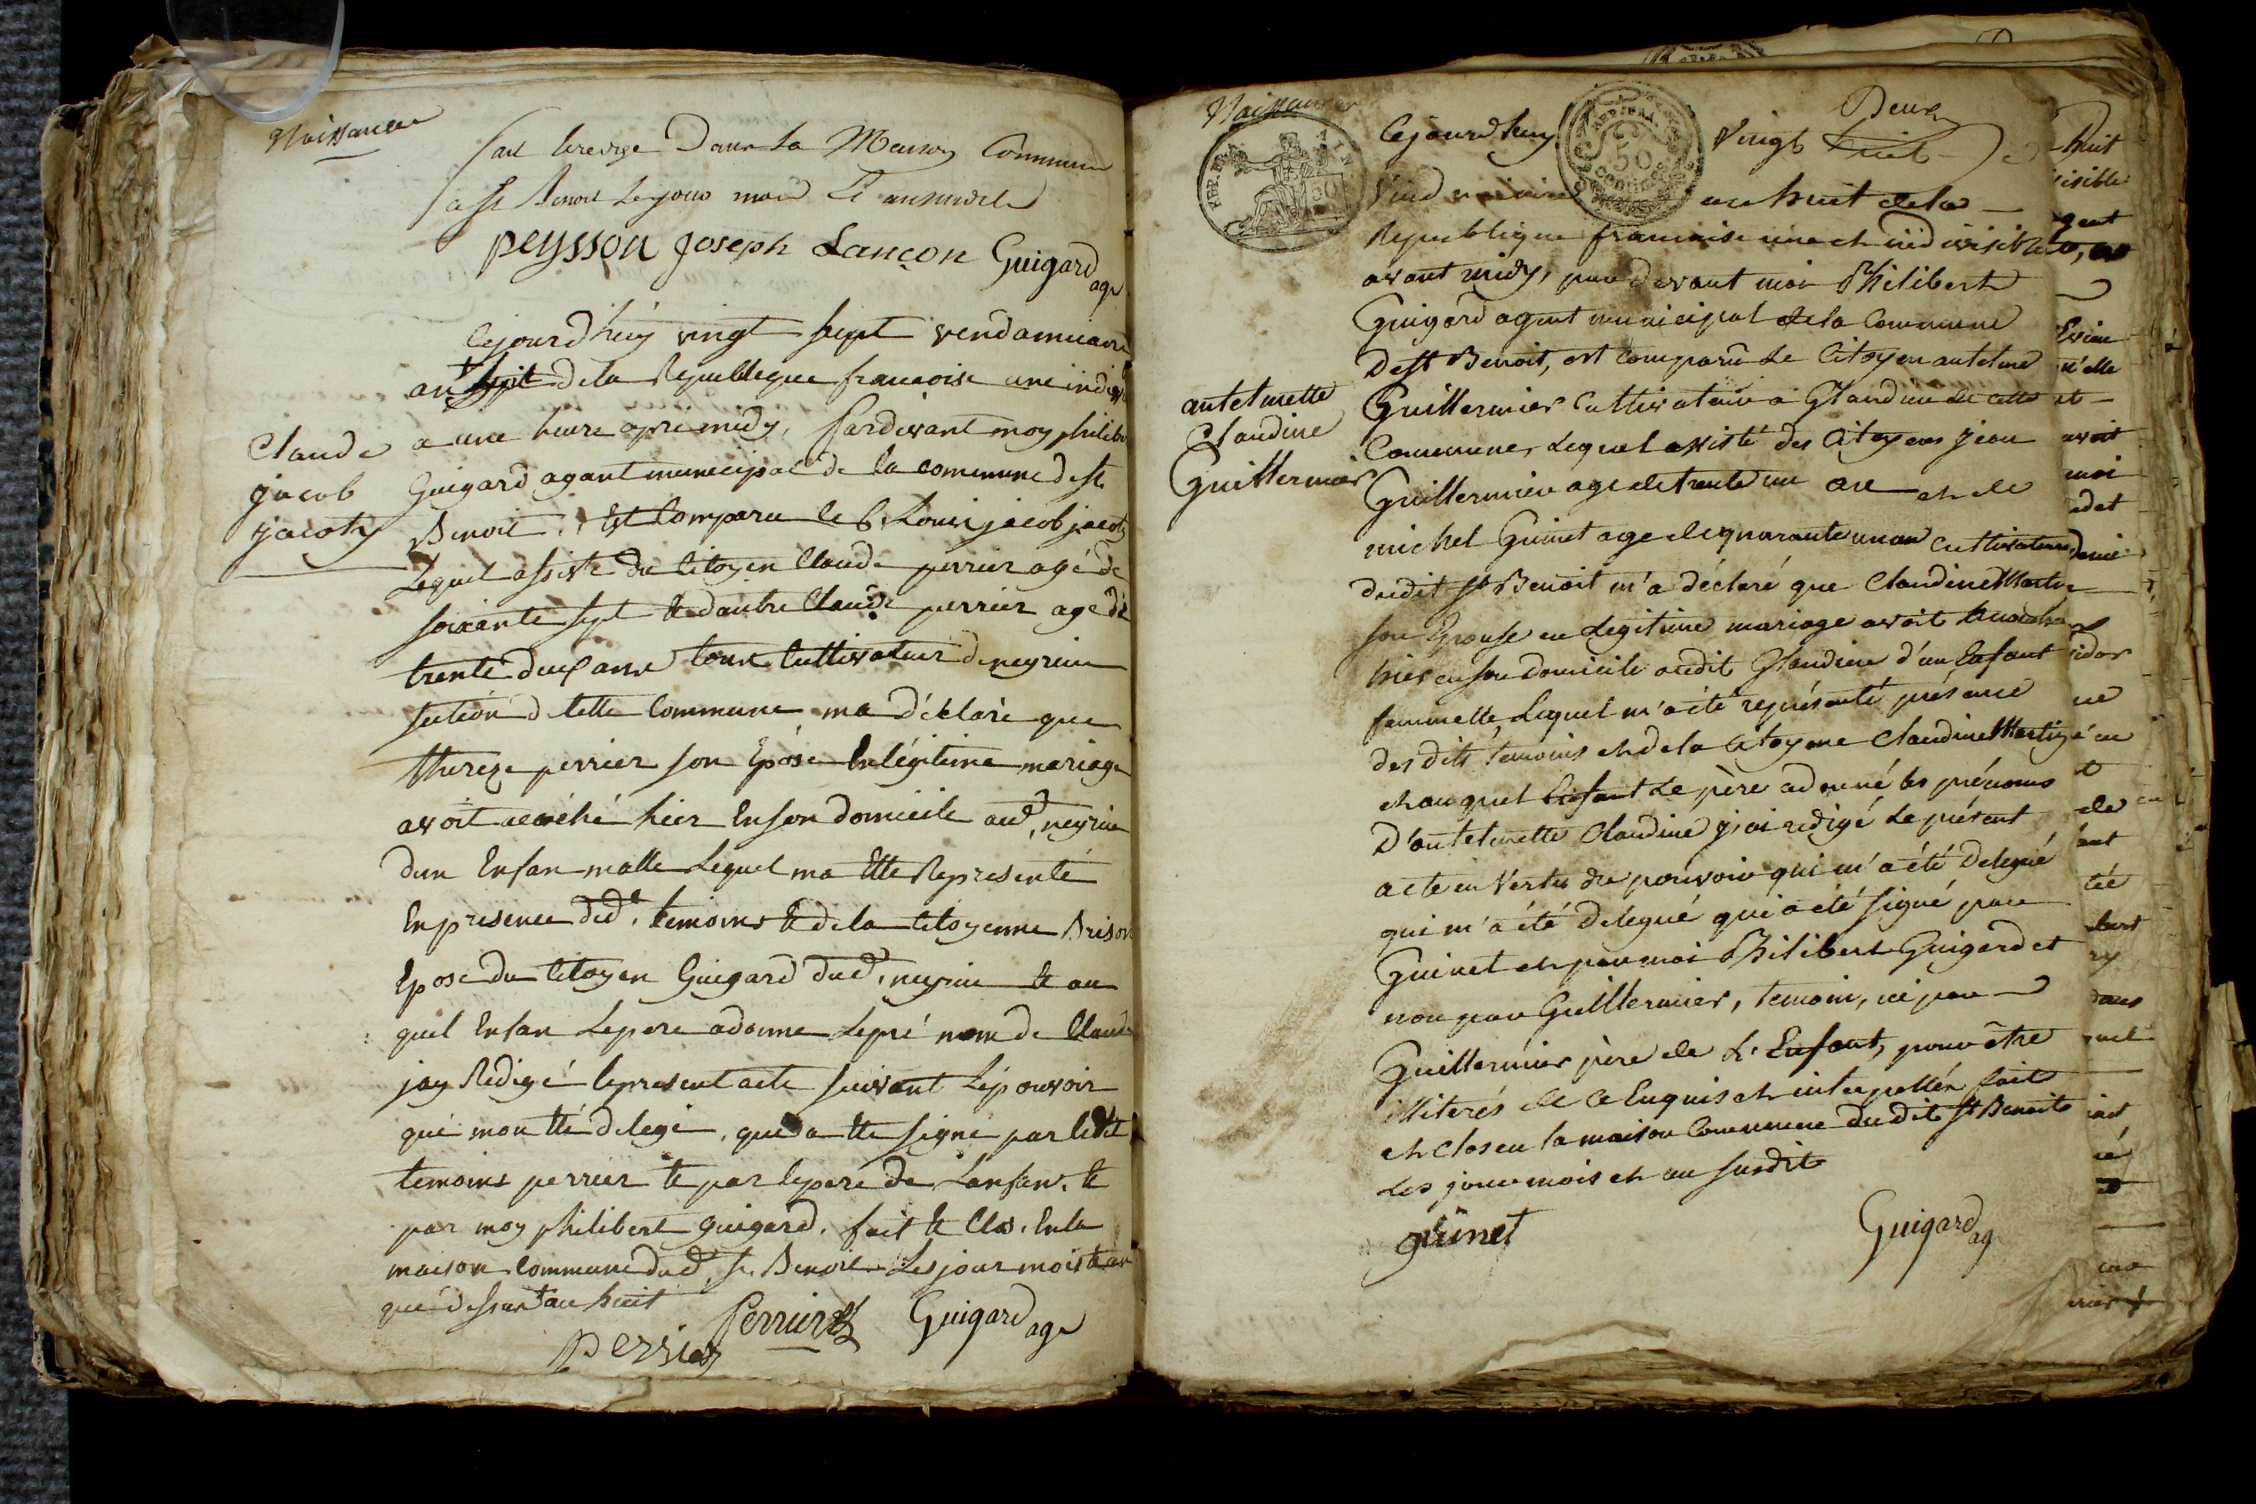 Naissance
fait
Dans La Maison Commune
a st Benoit Le jour mois et an
peysson Joseph Lançon Guigard
age
Cejourdhuy vingt sept vendamiaire
an huit de la Republique francoise une indivis
a une heure apré midy, Pardevant moy philib
Claude
jacob
jacoty
Guigard agant municipal de la commune de st
Benoit, Est Comparu le C. Louis jacob jacot
Lequel assiste du Citoyen Claude perrier agé de
soixante sept & dautre Claude perrier age de
trente deux ans tous Cultivateur de neyrieu
section d Cette Commune ma déclaré que
thereze perrier son Epose En légitime mariage
avoit acoché hier En son domicile aud. neyrieu
dun Enfan malle Lequel ma Etté Représenté
En presence dud. temoins & de la Citoyenne Brison
Epose du Citoyen Guigard dud. neyrieu & au
quel Enfan Le pere a donne Le pré nom de Claude
jay Rédigé le present acte suivant Le pouvoir
qué mon tté delégé, qué a tté signé par ledit
temoins perrier & par le pere de L'anfan, &
par moy philibert guigard. fait & Clos. En la
maison commune dud. st Benoit Les jour mois & an
qué dessus au huit
perrier Perrier Guigard age
Naissance
REP. FRA. AIN
50
centimes
Cejourd'huy vingt Deux
Vindémiaire an huit de la
Republique francaise une et indivisible,
avant midy, par devant moi Philibert
Guigard agent municipal de la Commune
De st Benoit, est comparû Le Citoyen antelme
antelmette
Claudine
Guillermier
Guillermier Cultivateur a Glandieu de cette
Commune, Lequel assisté des Citoyens jean
Guillermier age de trente un ans et de
michel Guinet age de quarante un an Cultivateurs
dudit st Benoit m'a déclaré que Claudine Martin
son Epouse en Legitime mariage avoit accouché
hier en son domicile audit Glandieu d'un Enfant
fammelle, Lequel m'a été représenté présence
des dits temoins et de la Citoyene Claudine Martin
et auquel Enfant Le père a donné les prénoms
D'antelmette Claudine j'ai redigé Le présent
acte en Vertu du pouvoir qui m'a été Delegué
qui m'a été Delegué qui a été signé par
Guinet et par moi Philibert Guigard et
non par Guillermier, temoin, ni par
Guillermier père de L'Enfant, pour être
illiterés de ce Enquis et interpellés fait
et clos en la maison Commune dudit st Benoit
Les jour mois et an susdits
guinet Guigard ag